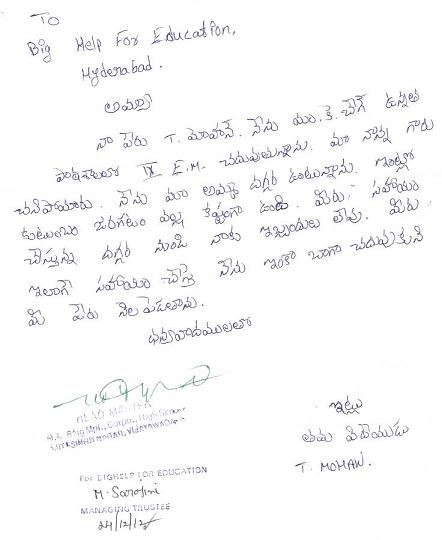 TO
Big Help For Education,
Hyderabad.
అమ్మా
నా పేరు T. మోహన్. నేను యం.కె.బైగ్ ఉన్నత
పాఠశాలలో IX E.M. చదువుతున్నాను. మా నాన్న గారు
చనిపోయారు. నేను మా అమ్మ దగ్గర ఉంటున్నాను. ఇంట్లో
కుటుంబం జరగటం వల్ల కష్టంగా ఉంది. మీరు సహాయం
చేస్తున్న దగ్గర నుండి నాకు ఇబ్బందులు లేవు. మీరు
ఇలాగే సహాయం చేస్తే నేను ఇంకా బాగా చదువుకుని
మీ పేరు నిలపెడతాను.
ధన్యవాదములతో
ఇట్లు
తమ విధేయుడు
T. MOHAN.
HEAD MASTER
M.K. Baig Mpl. Corpn. High School
VIJAYAWADA
For BIGHELP FOR EDUCATION
M. Sarojini
MANAGING TRUSTEE
24/12/12